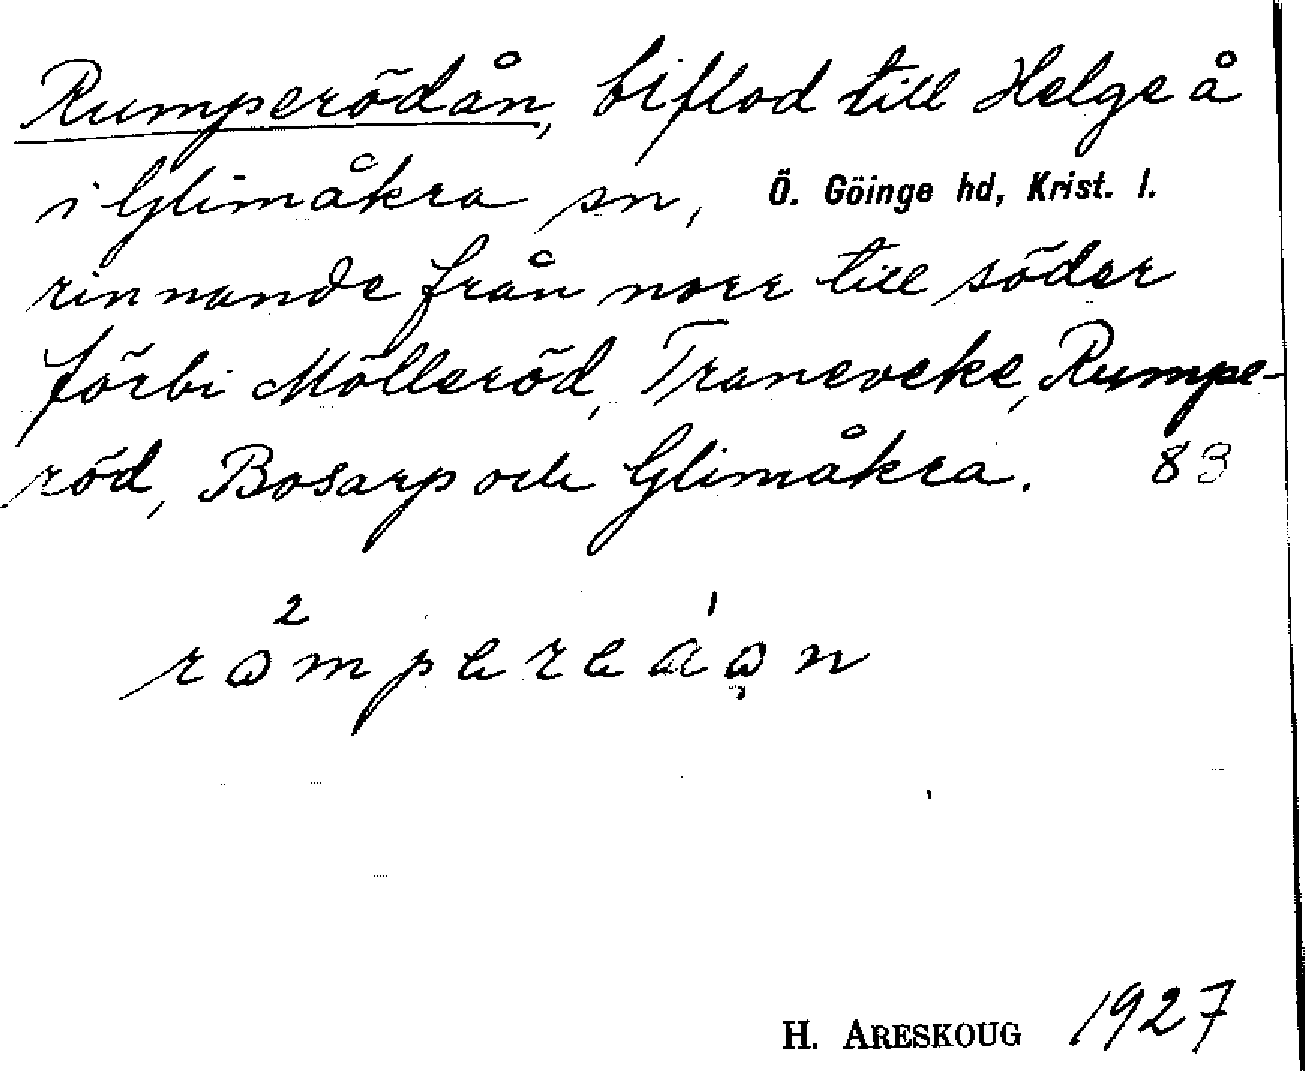 Rumperödån, biflod till Helge å
i Glimåkra sn, Ö. Göinge hd, Krist. l.
rinnande från norr till söder
förbi Mölleröd, Traneveke, Rumpe-
röd, Bosarp och Glimåkra. 83
H. ARESKOUG 1927